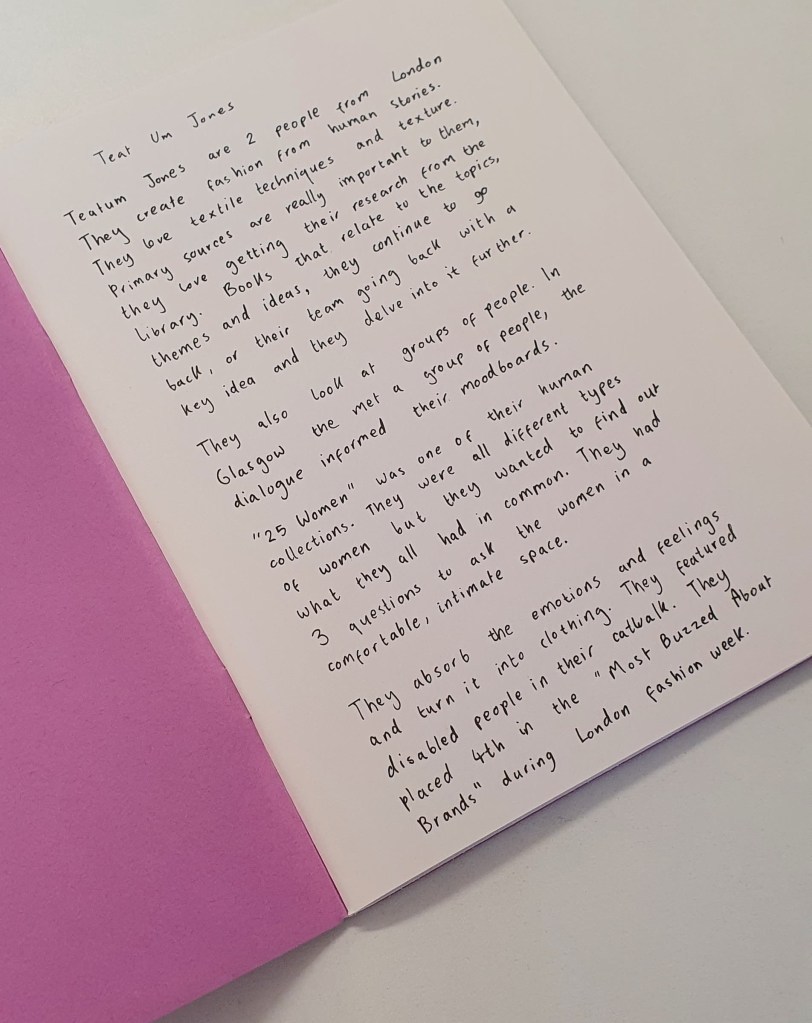 Teat Um Jones
Teatum Jones are 2 people from London
They create fashion from human stories.
They love textile techniques and texture.
Primary sources are really important to them,
they love getting their research from the
library. Books that relate to the topics,
themes and ideas, they continue to go
back, or their team going back with a
key idea and they delve into it further.
They also look at groups of people. In
Glasgow the met a group of people, the
dialogue informed their moodboards.
"25 Women" was one of their human
collections. They were all different types
of women but they wanted to find out
what they all had in common. They had
3 questions to ask the women in a
comfortable, intimate space.
They absorb the emotions and feelings
and turn it into clothing. They featured
disabled people in their catwalk. They
placed 4th in the "Most Buzzed About
Brands" during London fashion week.